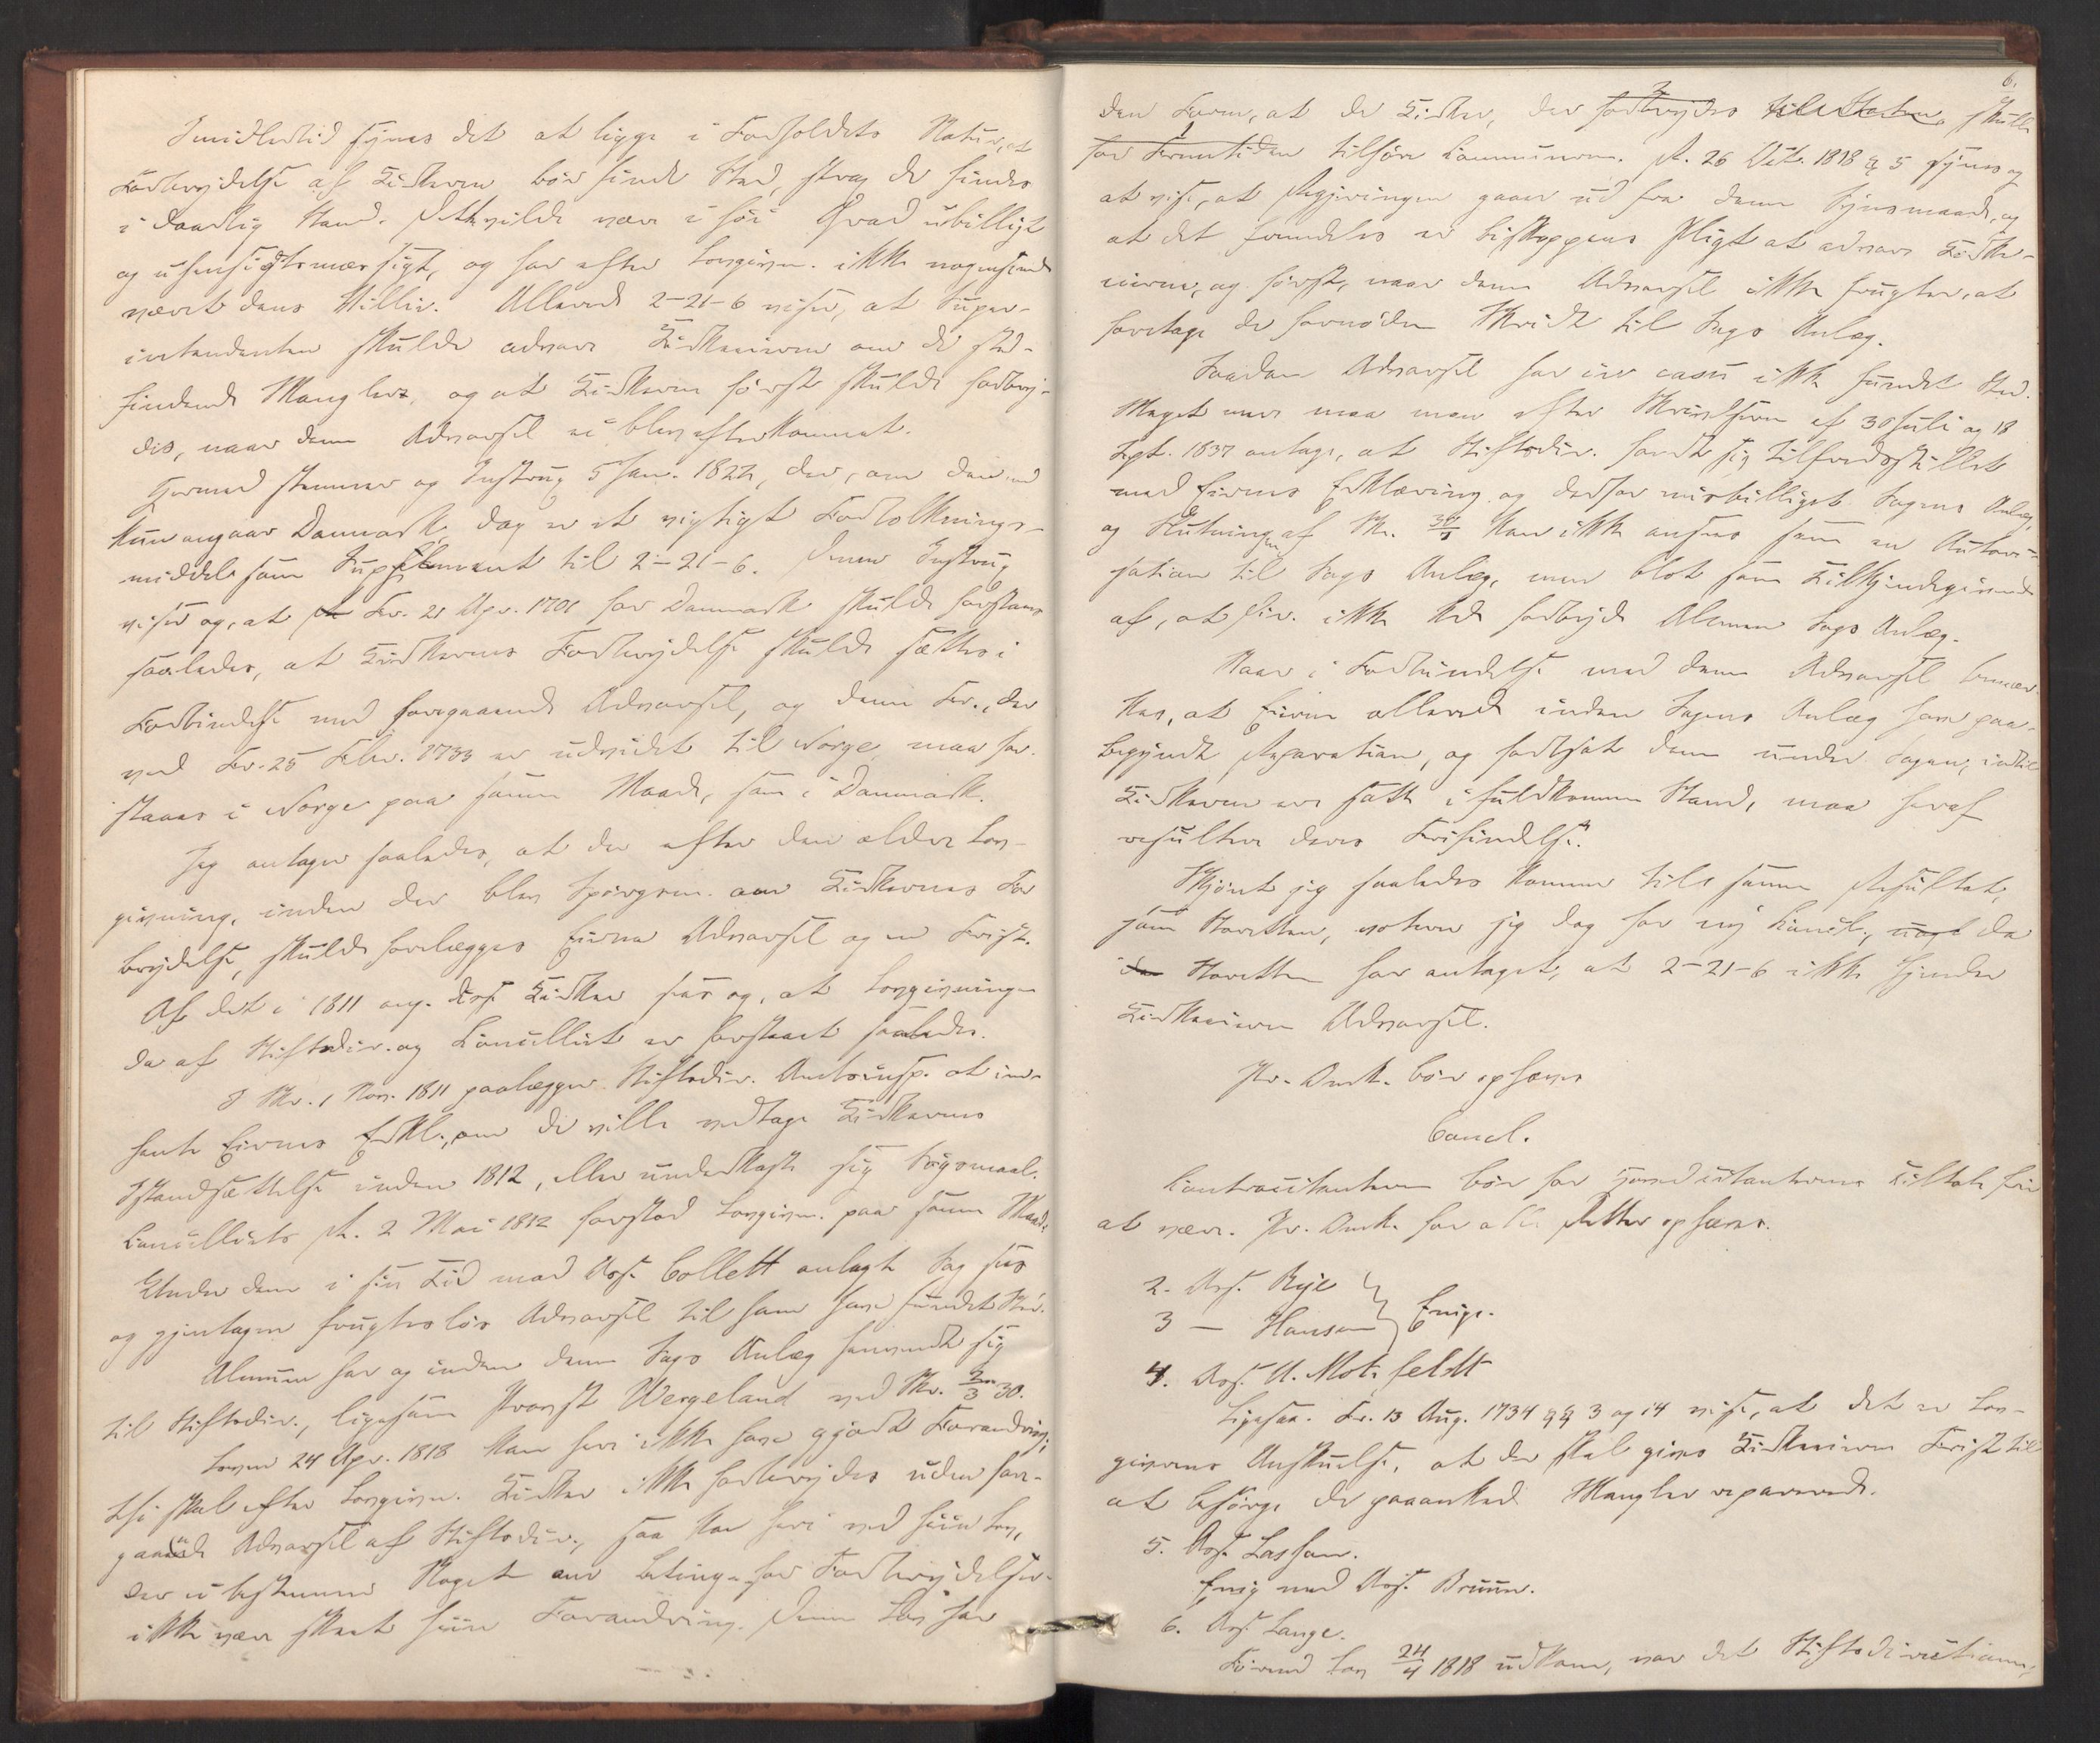 Imidlertid synes det at ligge i Forholdets Natur, at
Forbrydelse af Kirkerne bør finde Sted, strax de findes
i daarlig Stand. Dette vilde være i høi Grad ubilligt
og uhensigtsmæssigt, og har efter Lovgivn. ikke nogensinde
været dens Villie. Allerede 2-21-6 viser, at Super-
intendenten skulde advare Kirkeeierne om de sted-
findende Mangler, og at Kirkerne først skulde forbry-
des, naar denne Advarsel ei blev efterkommet.
Hermed stemmer og Instrux 5 Jan. 1824, der, om den end
kun angaar Danmark, dog er et vigtigt Fortolknings-
middel som Supplement til 2-21-6. Denne Instrux
viser og, at Fr. 21 Apr. 1701 for Danmark skulde forstaaes
saaledes, at Kirkernes Forbrydelse skulde sættes i
Forbindelse med foregaaende Advarsel, og denne Fr., der
ved Fr. 25 Febr. 1733 er udvidet til Norge, maa for-
staaes i Norge paa samme Maade, som i Danmark.
Jeg antager saaledes, at der efter den ældre Lov-
givning, inden der blev Spørgsm. om Kirkernes For
brydelse, skulde forelægges Eierne Advarsel og en Frist.
Af det i 1811 ang. disse Kirker sees og, at Lovgivningen
da af Stiftsdir. og Kancelliet er forstaaet saaledes.
I Skr. 1 Nov. 1811 paalægger Stiftsdir. Amtsinsp. at ind-
hente Eiernes Erkl., om de ville vedtage Kirkernes
Istandsættelse inden 1812, eller underkaste sig Søgsmaal.
Kancelliets R. 2 Mai 1812 forstod Lovgivn. paa samme Maade
Under den i sin Tid mod Ass. Collett anlagte Sag sees
og gjentagen frugtesløs Advarsel til ham have fundet Sted.
Almuen har og inden denne Sags Anlæg henvendt sig
til Stiftsdir., ligesom Provst Wergeland ved Skr. 2/3 30.
Loven 24 Apr. 1818 kan heri ikke have gjort Forandring;
thi skal efter Lovgivn. Kirker ikke forbrydes uden fore-
gaaende Advarsel af Stiftsdir., saa kan heri ved hiin Lov,
der ei bestemmer Noget om Beting. for Forbrydelsen
ikke være skeet hiin Forandring. Denne Lov har
6.
den Form, at de Kirker, der forbrydes til Staten, skulle
for Fremtiden tilhøre Kommunerne. R. 26 Oct. 1818 § 5 synes og
at vise, at Regjeringen gaaer ud fra denne Synsmaade, og
at det fremdeles er Biskoppens Pligt at advare Kirke-
eierne, og først, naar denne Advarsel ikke frugter, at
foretage de fornødne Skridt til Sags Anlæg.
Saadan Advarsel har in casu ikke fundet Sted.
Meget mere maa man efter Skrivelserne af 30 Juli og 18
Sept. 1837 antage, at Stiftsdir. fandt sig tilfredsstillet
med Eiernes Erklæring og derfor misbilliget Sagens Anlæg,
og Slutningen af Skr. kan ikke ansees som en Autori-
sation til Sags Anlæg, men blot som Tilkjendegivende
af, at Dir. ikke kan forbyde Almuen Sags Anlæg.
Naar i Forbindelse med denne Advarsel bemær-
kes, at Eierne allerede inden Sagens Anlæg have paa-
begyndt Reparation, og fortsat denne under Sagen, indtil
Kirkerne ere satte i fuldkommen Stand, maa heraf
resultere deres Frifindelse.
Skjønt jeg saaledes kommer til samme Resultat,
som Stiftsretten, voterer jeg dog for ny Concl., da
Overretten har antaget, at 2-21-6 ikke hjemler
Kirkeeierne Advarsel.
Pr. Omk. bør ophæves
Concl.
Contracitanterne bør for Hovedcitanternes Tiltale frie
at være. Pr. Omk. for alle Retter ophæves.
2. Ass. Bye }
3 — Hansen } Enige.
4. Ass. U. Motzfeldt
Ligesaa. Fr. 13 Aug. 1734 §§ 3 og 14 viser, at det er Lov-
givernes Anskuelse, at der skal gives Kirkeeieren Frist til
at besørge de paaankede Mangler reparerede.
5. Ass. Lasson.
Enig med Ass. Bruun.
6. Ass. Lange.
Førend Lov 24/4 1818 udkom, var det Stiftsdirectionen,